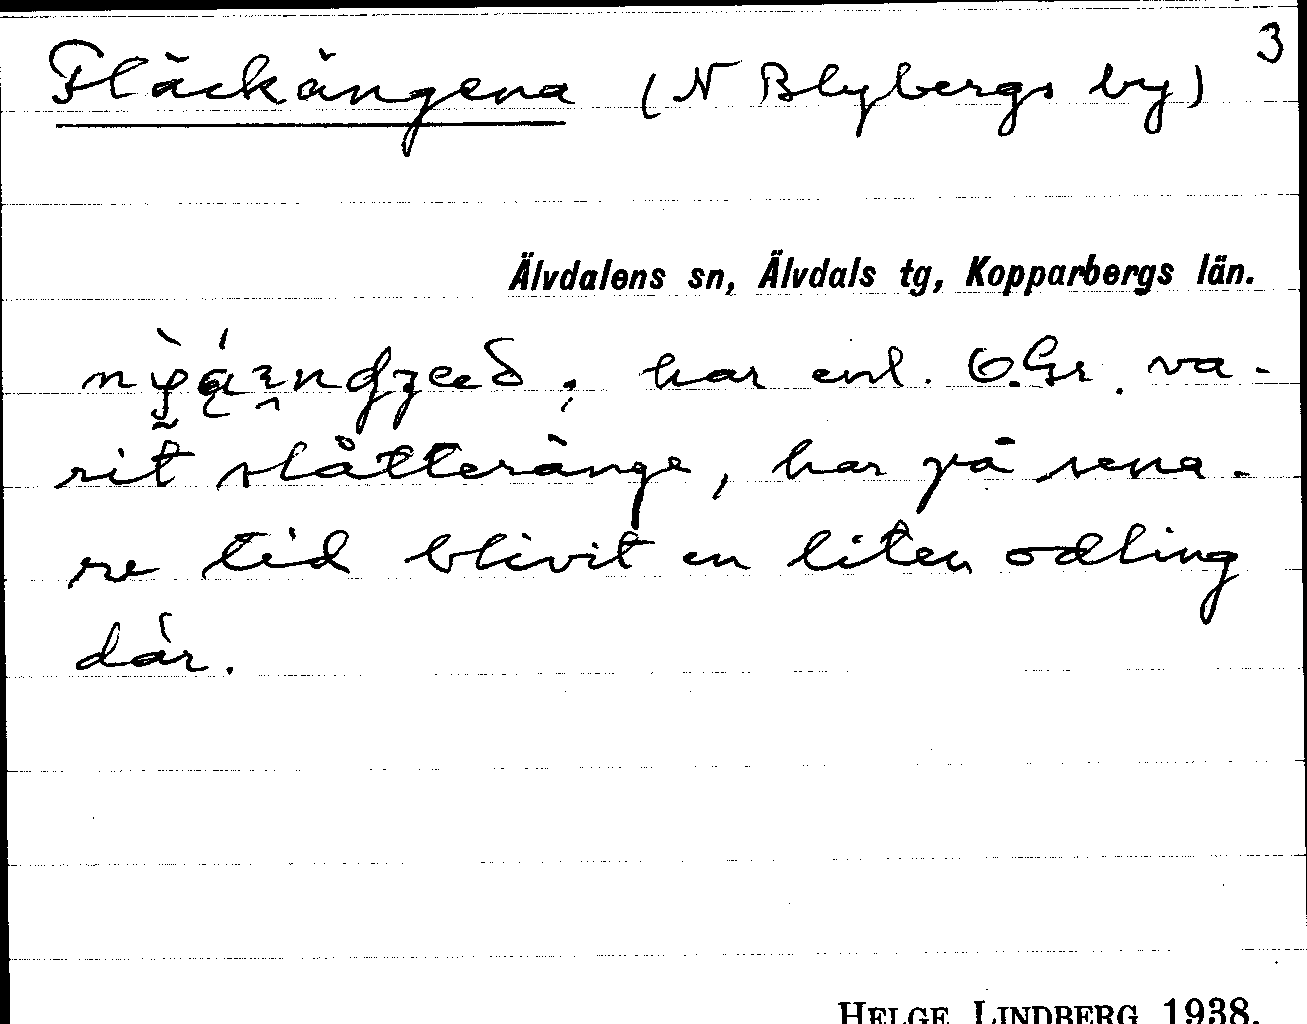 3
Fläckängena (N Blybergs by)
Älvdalens sn, Älvdals tg, Kopparbergs län.
; har enl. O.Gr. va-
rit slåtteränge, har på sena-
re tid blivit en liten odling
där.
HELGE LINDBERG 1938.